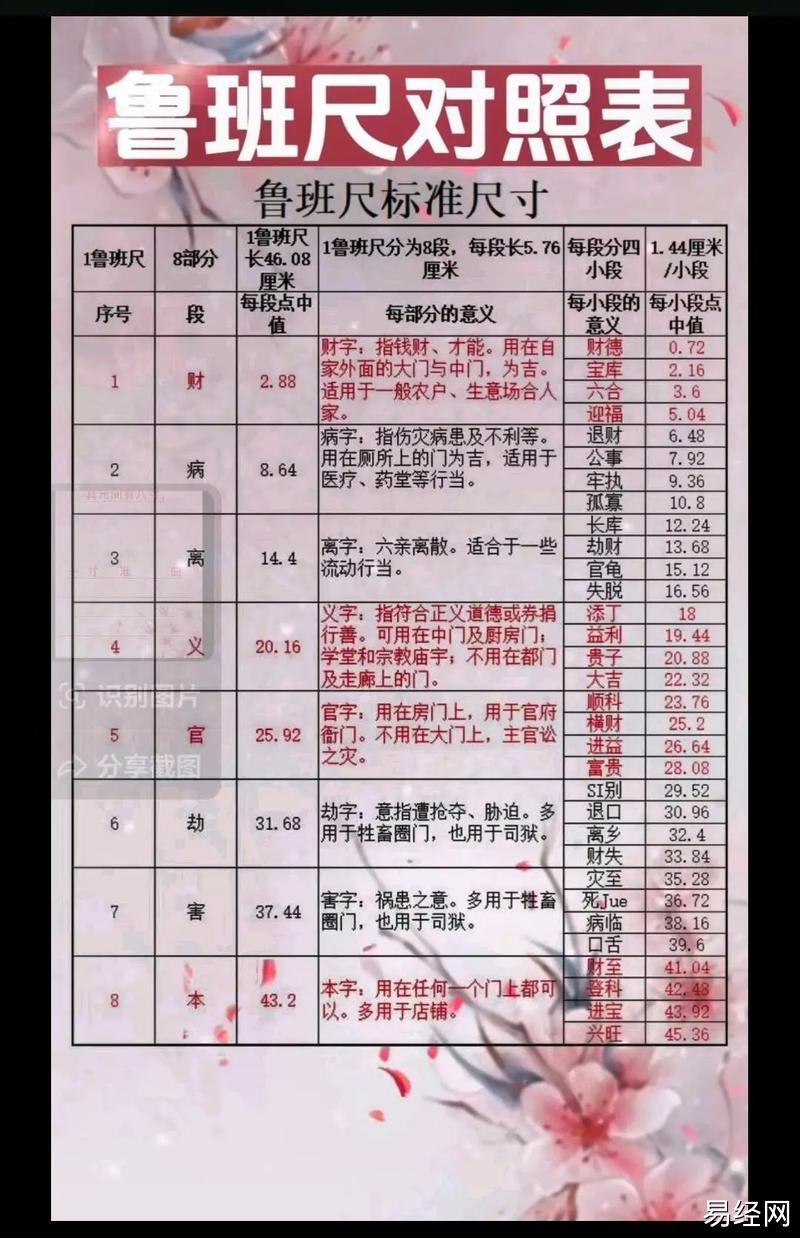 鲁班尺对照表
鲁班尺标准尺寸
1鲁班尺
8部分
1鲁班尺
长46.08
厘米
1鲁班尺分为8段，每段长5.76
厘米
每段分四
小段
1.44厘米
/小段
序号
段
每段点中
值
每部分的意义
每小段的
意义
每小段点
中值
1
财
2.88
财字：指钱财、才能。用在自
家外面的大门与中门，为吉。
适用于一般农户、生意场合人
家。
财德 0.72
宝库 2.16
六合 3.6
迎福 5.04
2
病
8.64
病字：指伤灾病患及不利等。
用在厕所上的门为吉，适用于
医疗、药堂等行当。
退财 6.48
公事 7.92
牢执 9.36
孤寡 10.8
3
离
14.4
离字：六亲离散。适合于一些
流动行当。
长库 12.24
劫财 13.68
官龟 15.12
失脱 16.56
4
义
20.16
义字：指符合正义道德或券捐
行善。可用在中门及厨房门；
学堂和宗教庙宇；不用在都门
及走廊上的门。
添丁 18
益利 19.44
贵子 20.88
大吉 22.32
5
官
25.92
官字：用在房门上，用于官府
衙门。不用在大门上，主官讼
之灾。
顺科 23.76
横财 25.2
进益 26.64
富贵 28.08
6
劫
31.68
劫字：意指遭抢夺、胁迫。多
用于牲畜圈门，也用于司狱。
SI别 29.52
退口 30.96
离乡 32.4
财失 33.84
7
害
37.44
害字：祸患之意。多用于牲畜
圈门，也用于司狱。
灾至 35.28
死Jue 36.72
病临 38.16
口舌 39.6
8
本
43.2
本字：用在任何一个门上都可
以。多用于店铺。
财至 41.04
登科 42.48
进宝 43.92
兴旺 45.36
识别图片
分享截图
易经网